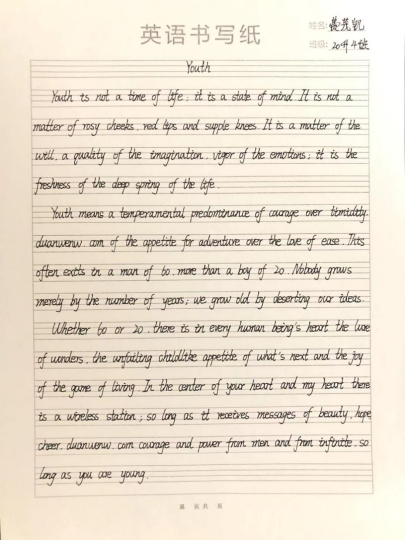 英语书写纸
姓名:
班级: 2014班
Youth
Youth is not a time of life; it is a state of mind. It is not a
matter of rosy cheeks, red lips and supple knees. It is a matter of the
will, a quality of the imagination, vigor of the emotions; it is the
freshness of the deep spring of the life.
Youth means a temperamental predominance of courage over timidity.
duanwenw.com of the appetite for adventure over the love of ease. This
often exits in a man of 60 more than a boy of 20. Nobody grows
merely by the number of years; we grow old by deserting our ideas.
Whether 60 or 20, there is in every human being's heart the lure
of wonders, the unfailing childlike appetite of what's next and the joy
of the game of living. In the center of your heart and my heart there
is a wireless station; so long as it receives messages of beauty, hope
cheer, duanwenw.com courage and power from men and from infinite, so
long as you are young.
第 页 共 页